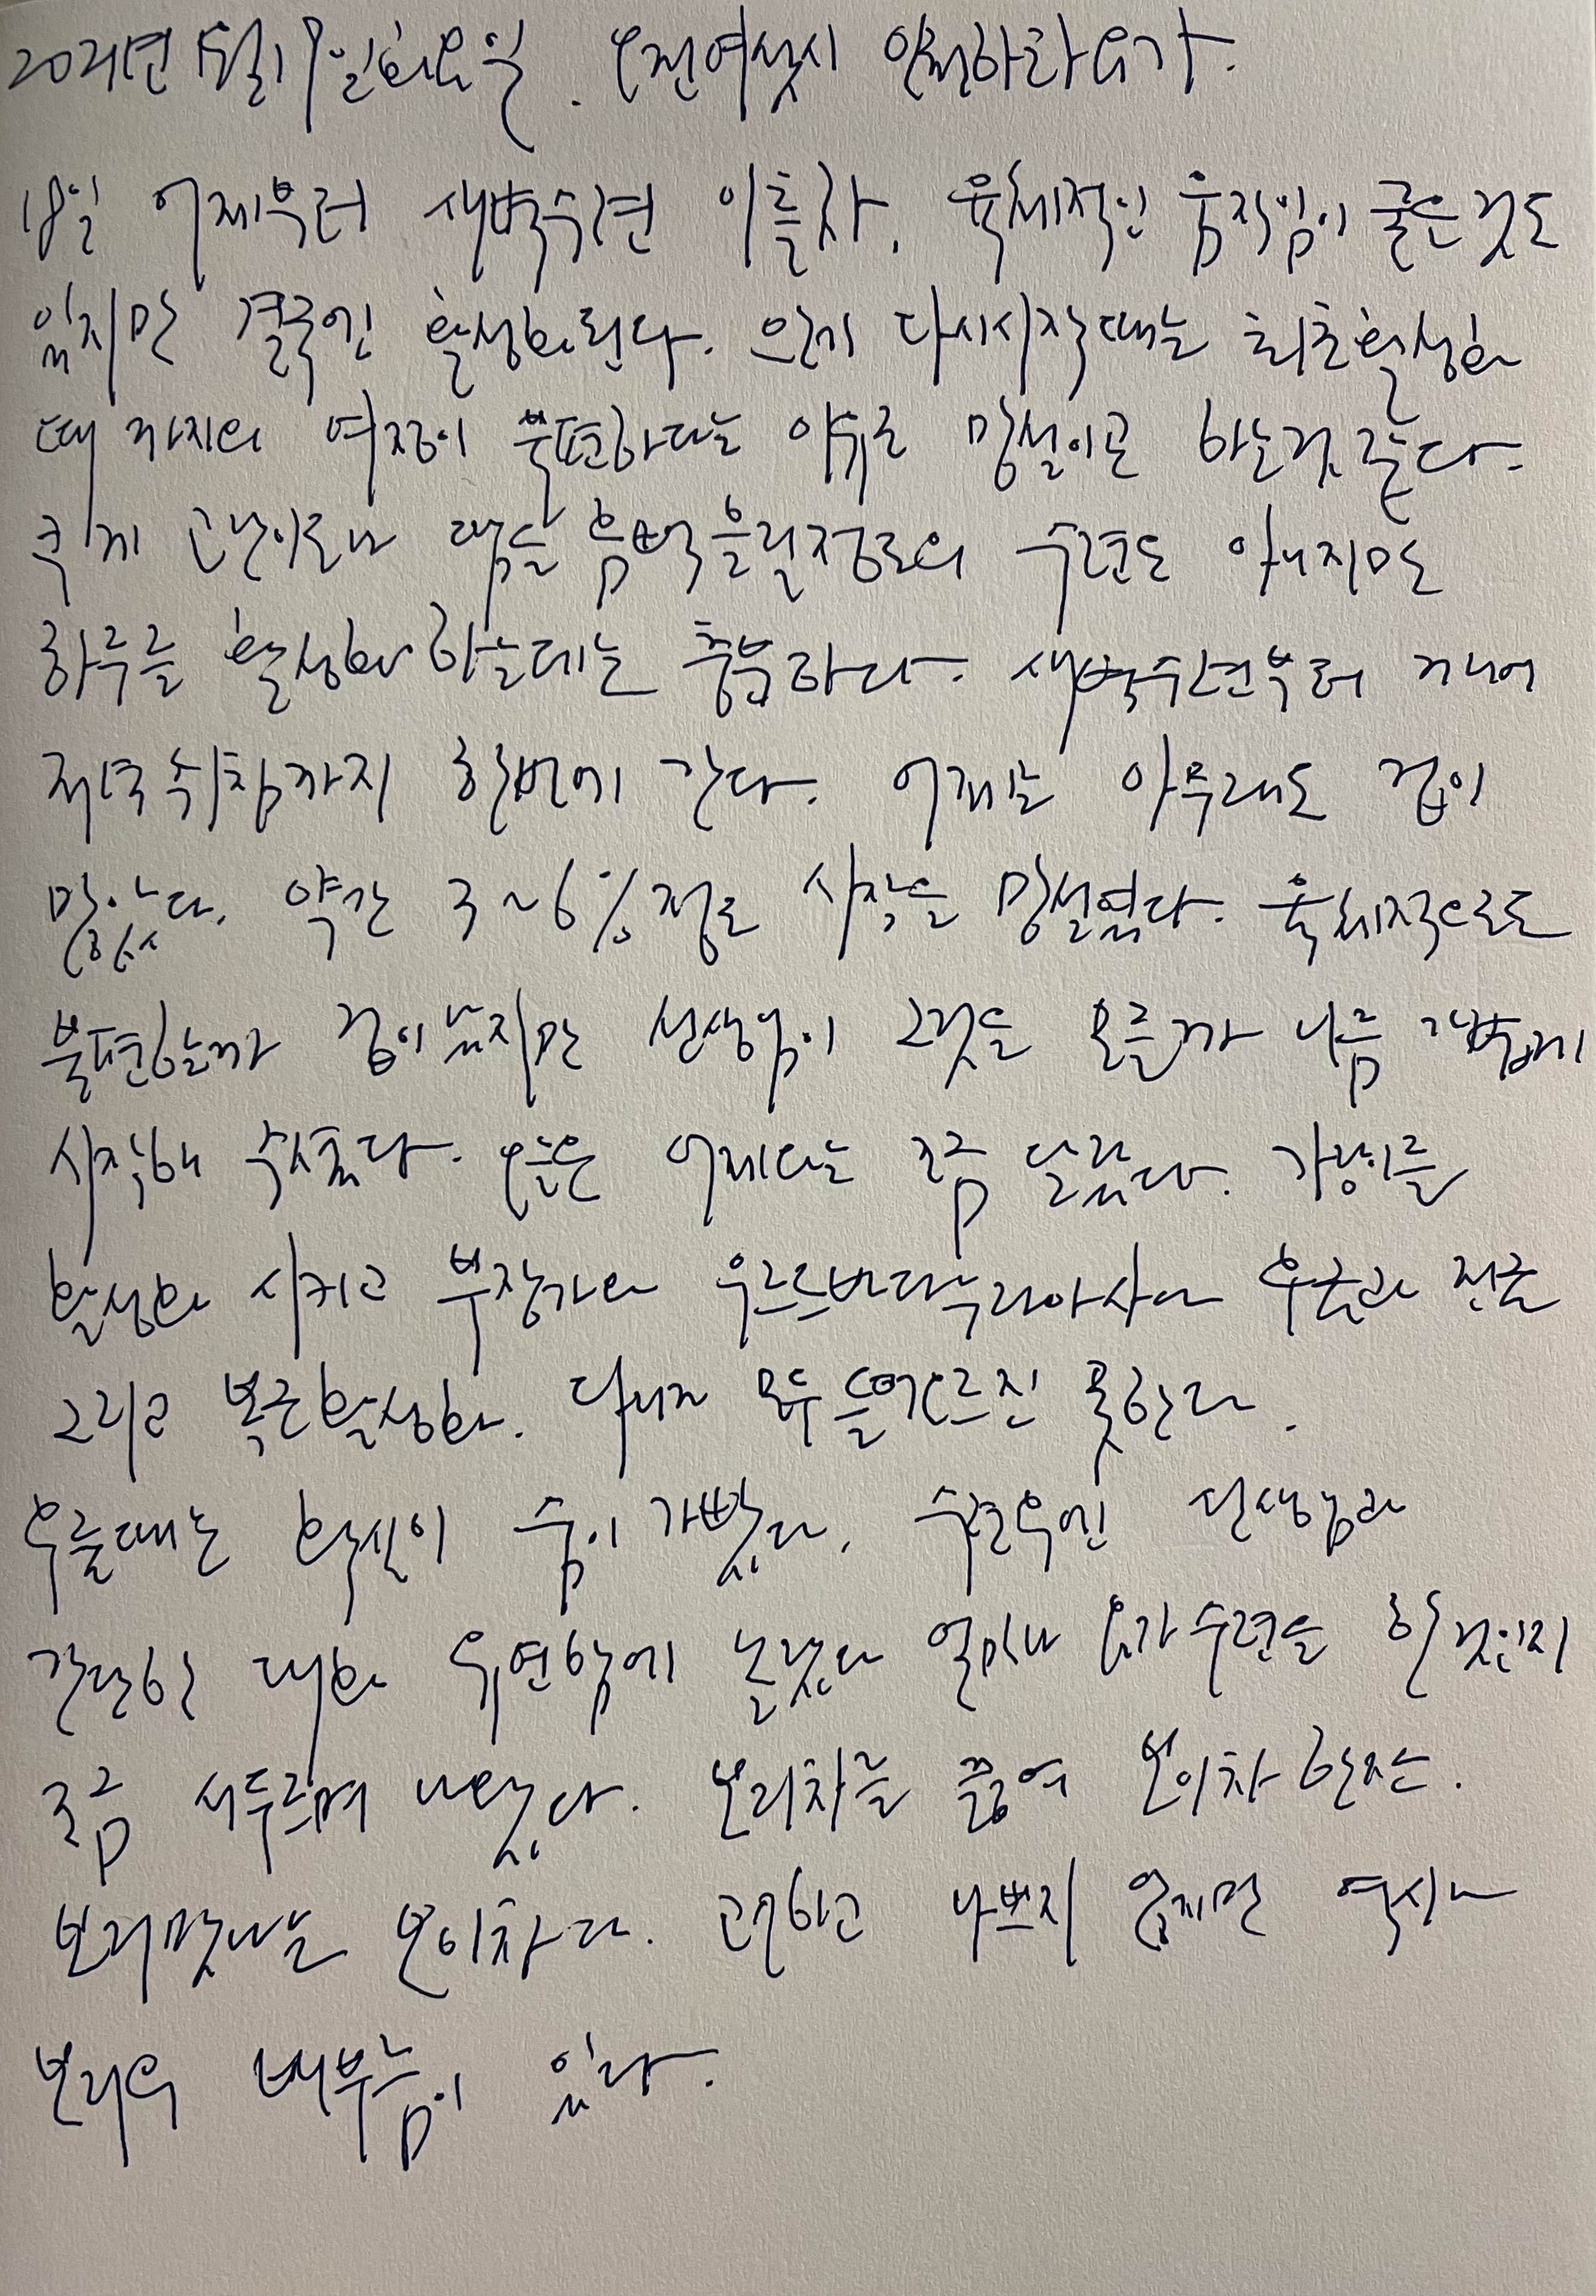 2021년 5월 19일 화요일. 오전여섯시 인칭하라요가.
18일 어제부터 새벽수련 이틀차. 육체적인 움직임이 굶은것도
있지만 결국엔 활성화된다. 요가 다시시작때는 최초활성화
때 까지의 여정이 불편하다는 이유로 망설이곤 하는것 같다.
크게 고난이도나 땀을 흠뻑 흘릴정도의 수련도 아니지만
하루를 활성화 하는데는 충분하다. 새벽수련부터 깨어
저녁 취침까지 한번에 간다. 어제는 아무래도 겁이
많았다. 약간 3~6% 정도 시작을 망설였다. 육체적으로도
불편할까 겁이 났지만 선생님이 그것을 모를까 나름 가볍게
시작해 주시줬다. 오늘은 어제와는 조금 달랐다. 가랑이를
활성화 시키고 부장가와 우르드바다누라아사나 후굴과 전굴
그리고 복근활성화. 다리가 모두 들어오르진 못한다.
오를때는 확실히 숨이 가빴다. 수련후엔 선생님과
간단한 대화 유연함에 놀랐다 얼마나 요가수련을 한것인지
조금 서두르며 나왔다. 보리차를 끓여 보이차 한잔.
보리맛나는 보이차다. 고소하고 나쁘지 않지만 역시나
보리의 배부름이 있다.